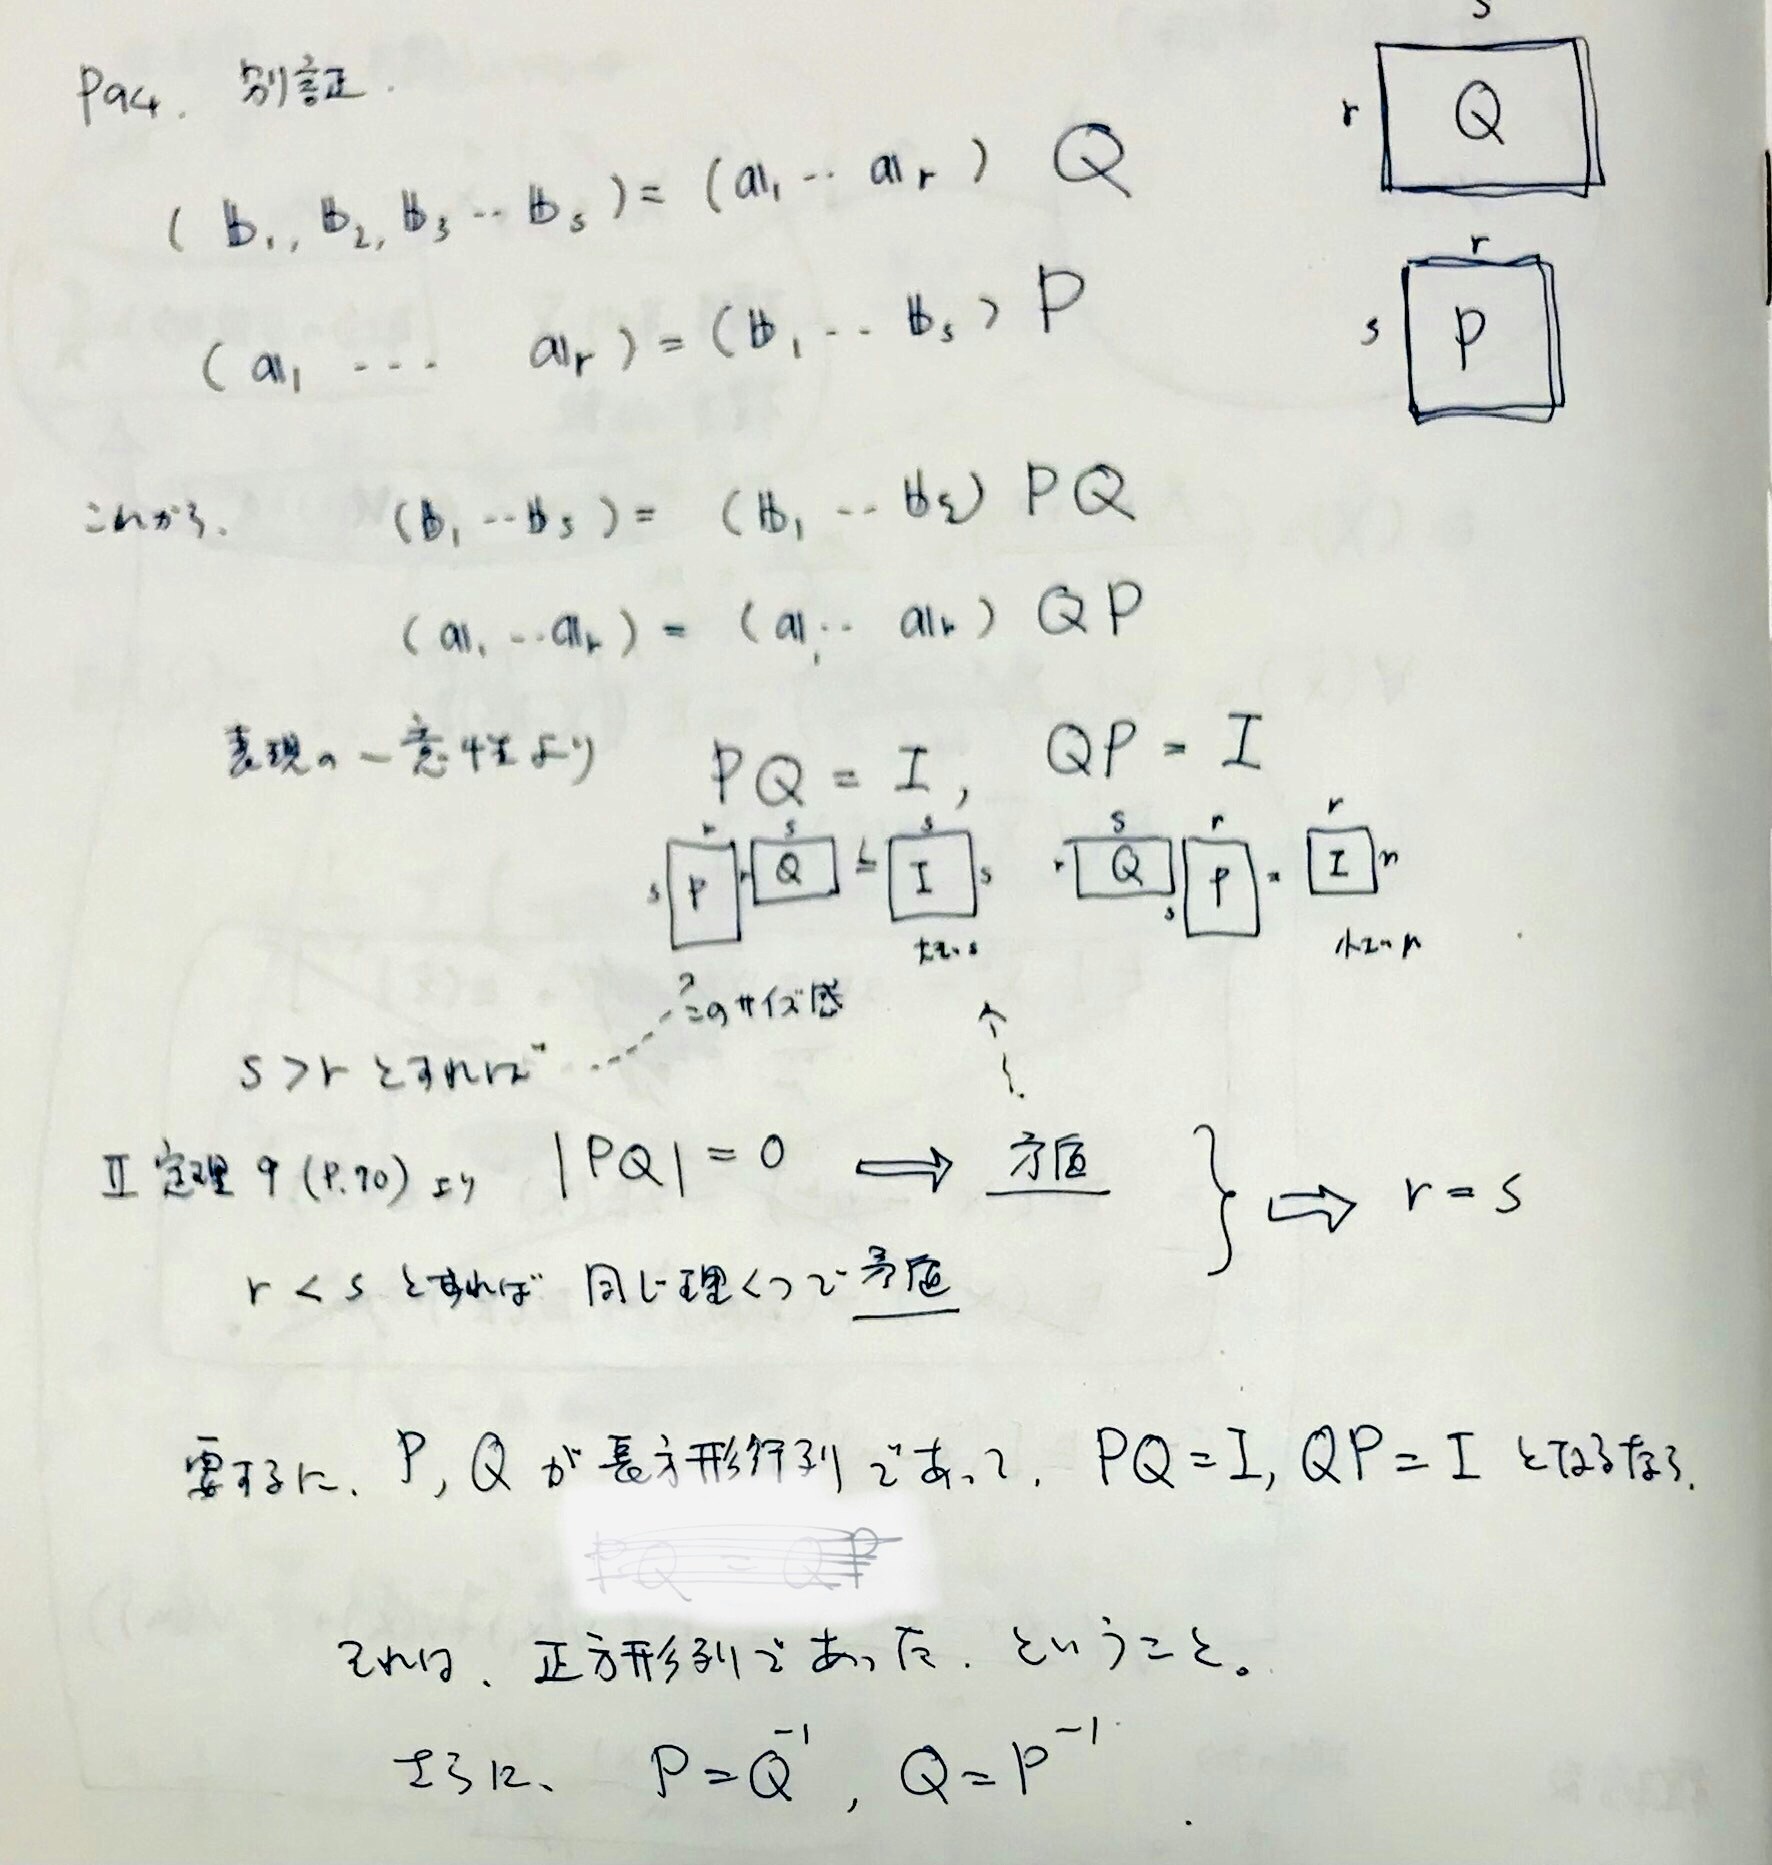 P94. 別証.
s
r Q
(𝕓₁, 𝕓₂, 𝕓₃ ‥ 𝕓ₛ) = (𝕒₁ ‥ 𝕒ᵣ) Q
r
s P
(𝕒₁ … 𝕒ᵣ) = (𝕓₁ ‥ 𝕓ₛ) P
これから、 (𝕓₁ ‥ 𝕓ₛ) = (𝕓₁ ‥ 𝕓ₛ) PQ
(𝕒₁ ‥ 𝕒ᵣ) = (𝕒₁ ‥ 𝕒ᵣ) QP
表現の一意性より PQ = I, QP = I
r s s s r r
s P r Q = I s r Q s P = I r
大きい s 小さい r
このサイズ感
s > r とすれば
II 定理 9 (P.70) より |PQ| = 0 ⟹ 矛盾
⟹ r = s
r < s とすれば 同じ理くつで 矛盾
要するに、 P, Q が 長方形行列であって、 PQ = I, QP = I となるなら、
PQ = QP
それは、正方形列であった、ということ。
さらに、 P = Q⁻¹, Q = P⁻¹.